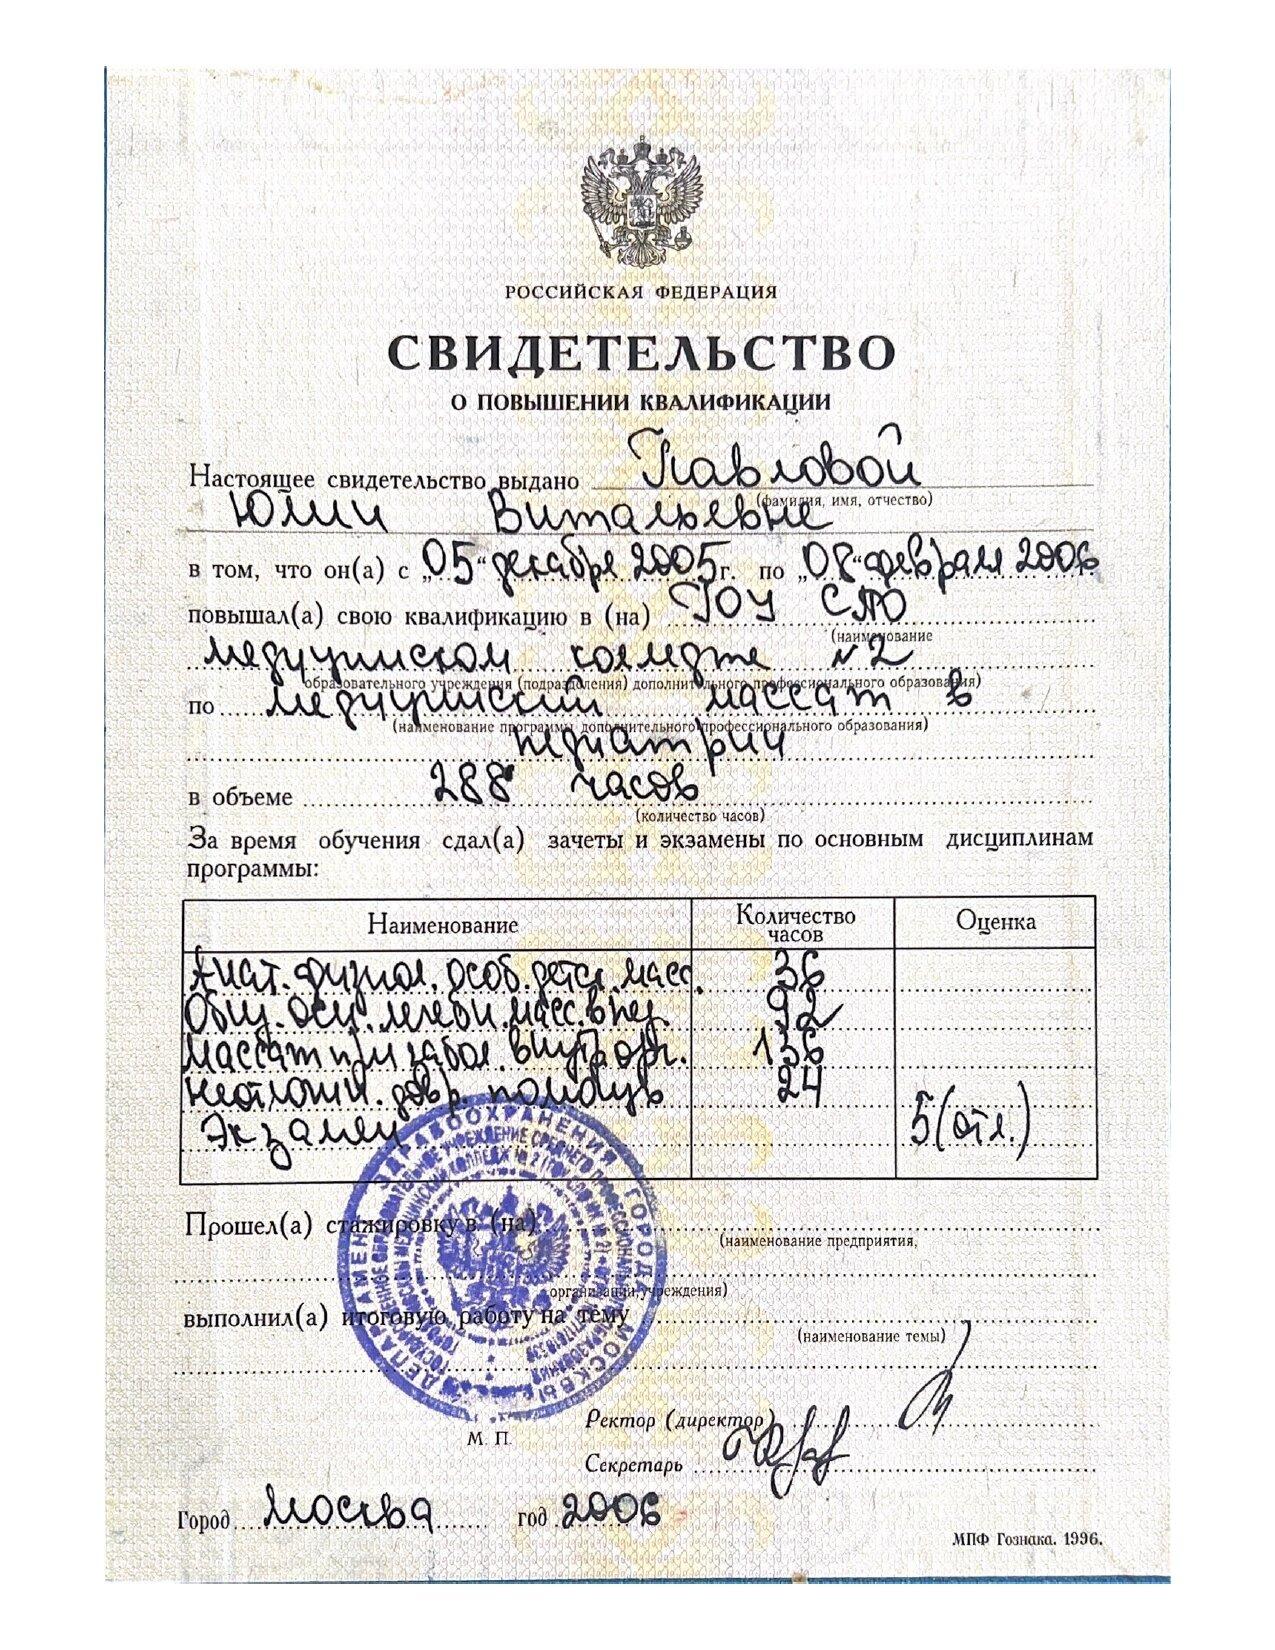 РОССИЙСКАЯ ФЕДЕРАЦИЯ
СВИДЕТЕЛЬСТВО
О ПОВЫШЕНИИ КВАЛИФИКАЦИИ
Настоящее свидетельство выдано Павловой
(фамилия, имя, отчество)
Юлии Витальевне
в том, что он(а) с „05“ декабря 2005г. по „08“ февраля 2006
повышал(а) свою квалификацию в (на) ГОУ СПО
(наименование
медицинском колледже №2
образовательного учреждения (подразделения) дополнительного профессионального образования)
по медицинский массаж в
(наименование программы дополнительного профессионального образования)
педиатрии
в объеме 288 часов
(количество часов)
За время обучения сдал(а) зачеты и экзамены по основным дисциплинам
программы:
Наименование Количество часов Оценка
Анат. физиол. особ. детск. масс. 36
Общ. осн. лечебн. масс. в пед. 92
Массаж при забол. внутр. орг. 136
Неотлож. довр. помощь 24
Экзамен 5 (отл.)
Прошел(а) стажировку в (на)
(наименование предприятия,
организации, учреждения)
выполнил(а) итоговую работу на тему
(наименование темы)
ДЕПАРТАМЕНТ ЗДРАВООХРАНЕНИЯ ГОРОДА МОСКВЫ
Ректор (директор)
М. П.
Секретарь
Город Москва год 2006
МПФ Гознака. 1996.